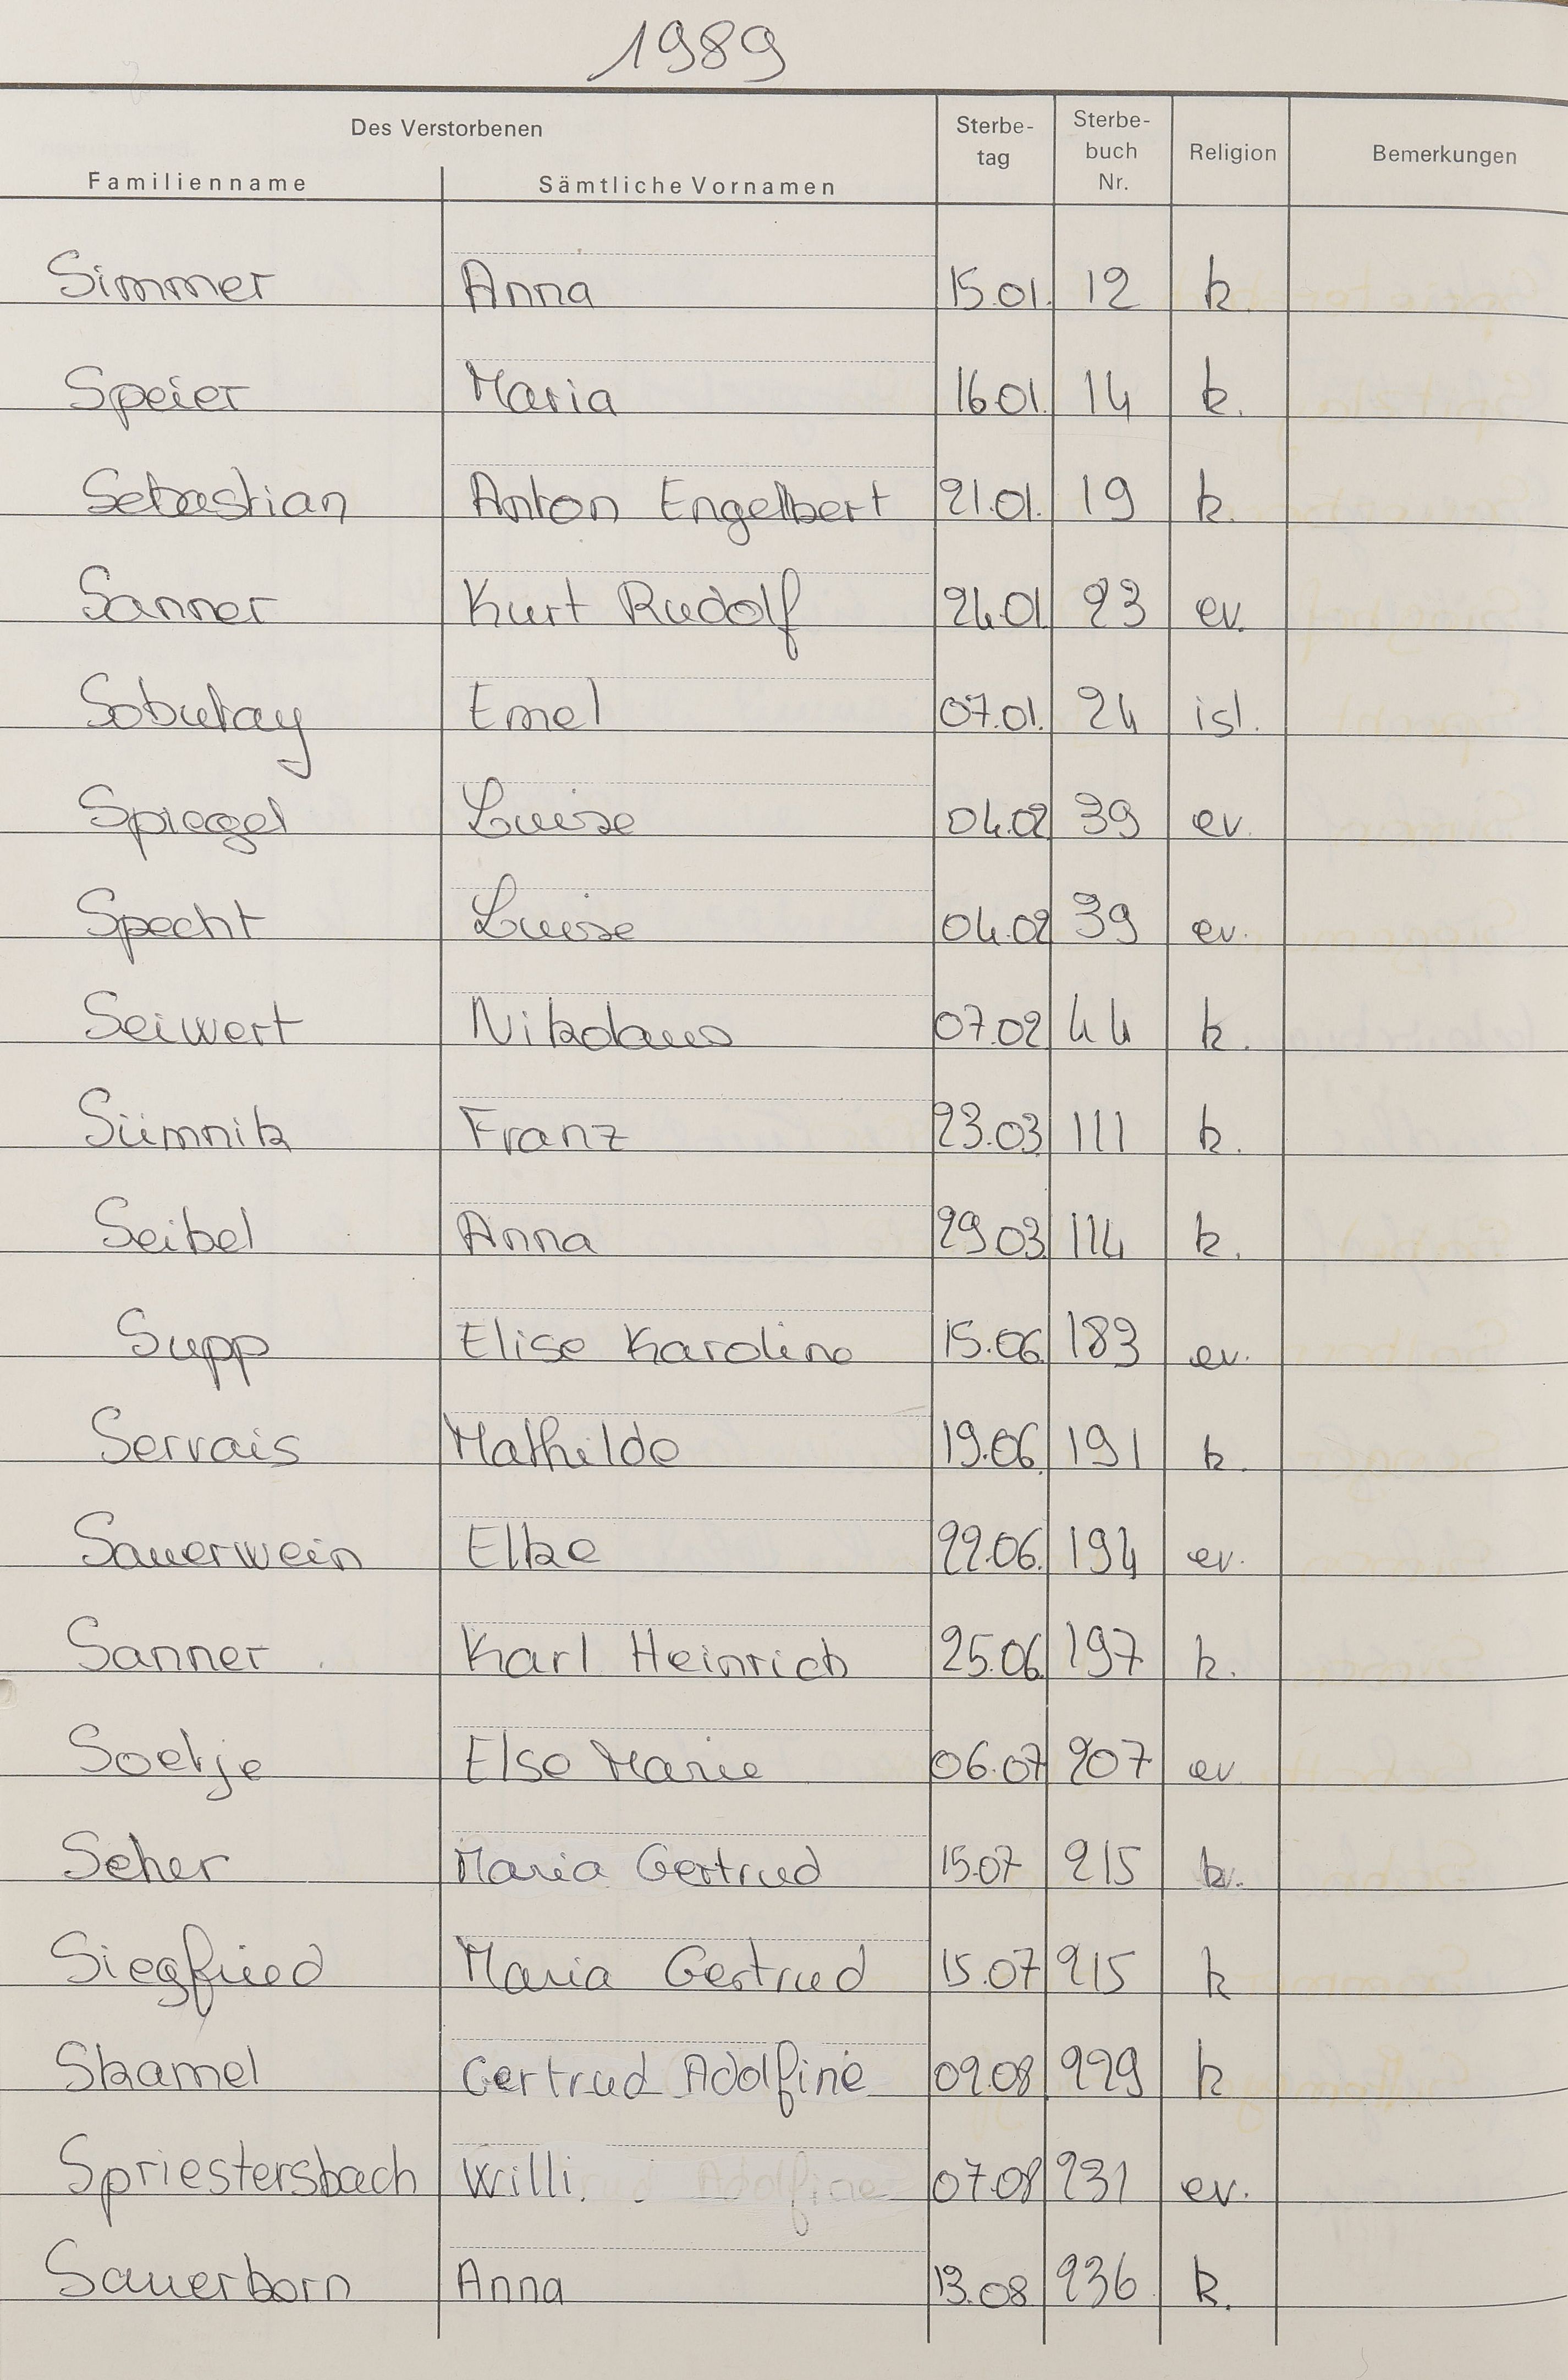 1989
Des Verstorbenen
Familienname Sämtliche Vornamen Sterbe-tag Sterbe-buch Nr. Religion Bemerkungen
Simmer Anna 15.01. 12 k.
Speier Maria 16.01. 14 k.
Sebastian Anton Engelbert 21.01. 19 k.
Sanner Kurt Rudolf 24.01 23 ev.
Sobutay Emel 07.01. 24 isl.
Spiegel Luise 04.02 39 ev.
Specht Luise 04.02 39 ev.
Seiwert Nikolaus 07.02 44 k.
Sümnik Franz 23.03 111 k.
Seibel Anna 29.03 114 k.
Supp Elise Karoline 15.06. 183 ev.
Servais Mathilde 19.06. 191 k.
Sauerwein Elke 22.06. 194 ev.
Sanner Karl Heinrich 25.06. 197 k.
Soetje Else Marie 06.07 207 ev
Seher Maria Gertrud 15.07 215 k.
Siegfried Maria Gertrud 15.07 215 k
Skamel Gertrud Adolfine 09.08 229 k
Spriestersbach Willi. 07.08 231 ev.
Sauerborn Anna 13.08 236 k.